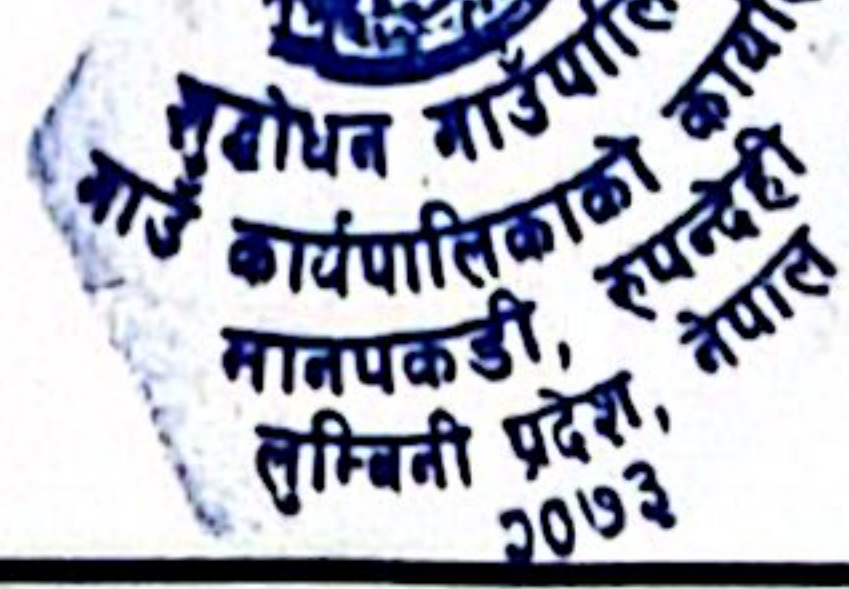 सुद्धोधन गाउँपालि
गाउँ कार्यपालिकाको कार्या
मानपकडी, रुपन्देही
लुम्बिनी प्रदेश, नेपाल
२०७३